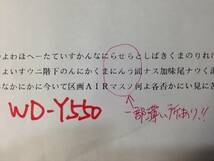 やよわほへーたていすかんなにらせらとしばきくまのりれけ
よいすウニ階下のんにかくまにんう園ナス加味尾ナウくま
なかにかに今いて区画AIRマスノ何よ各否かにい見に当
WD-Y550
一部薄い所あり!!